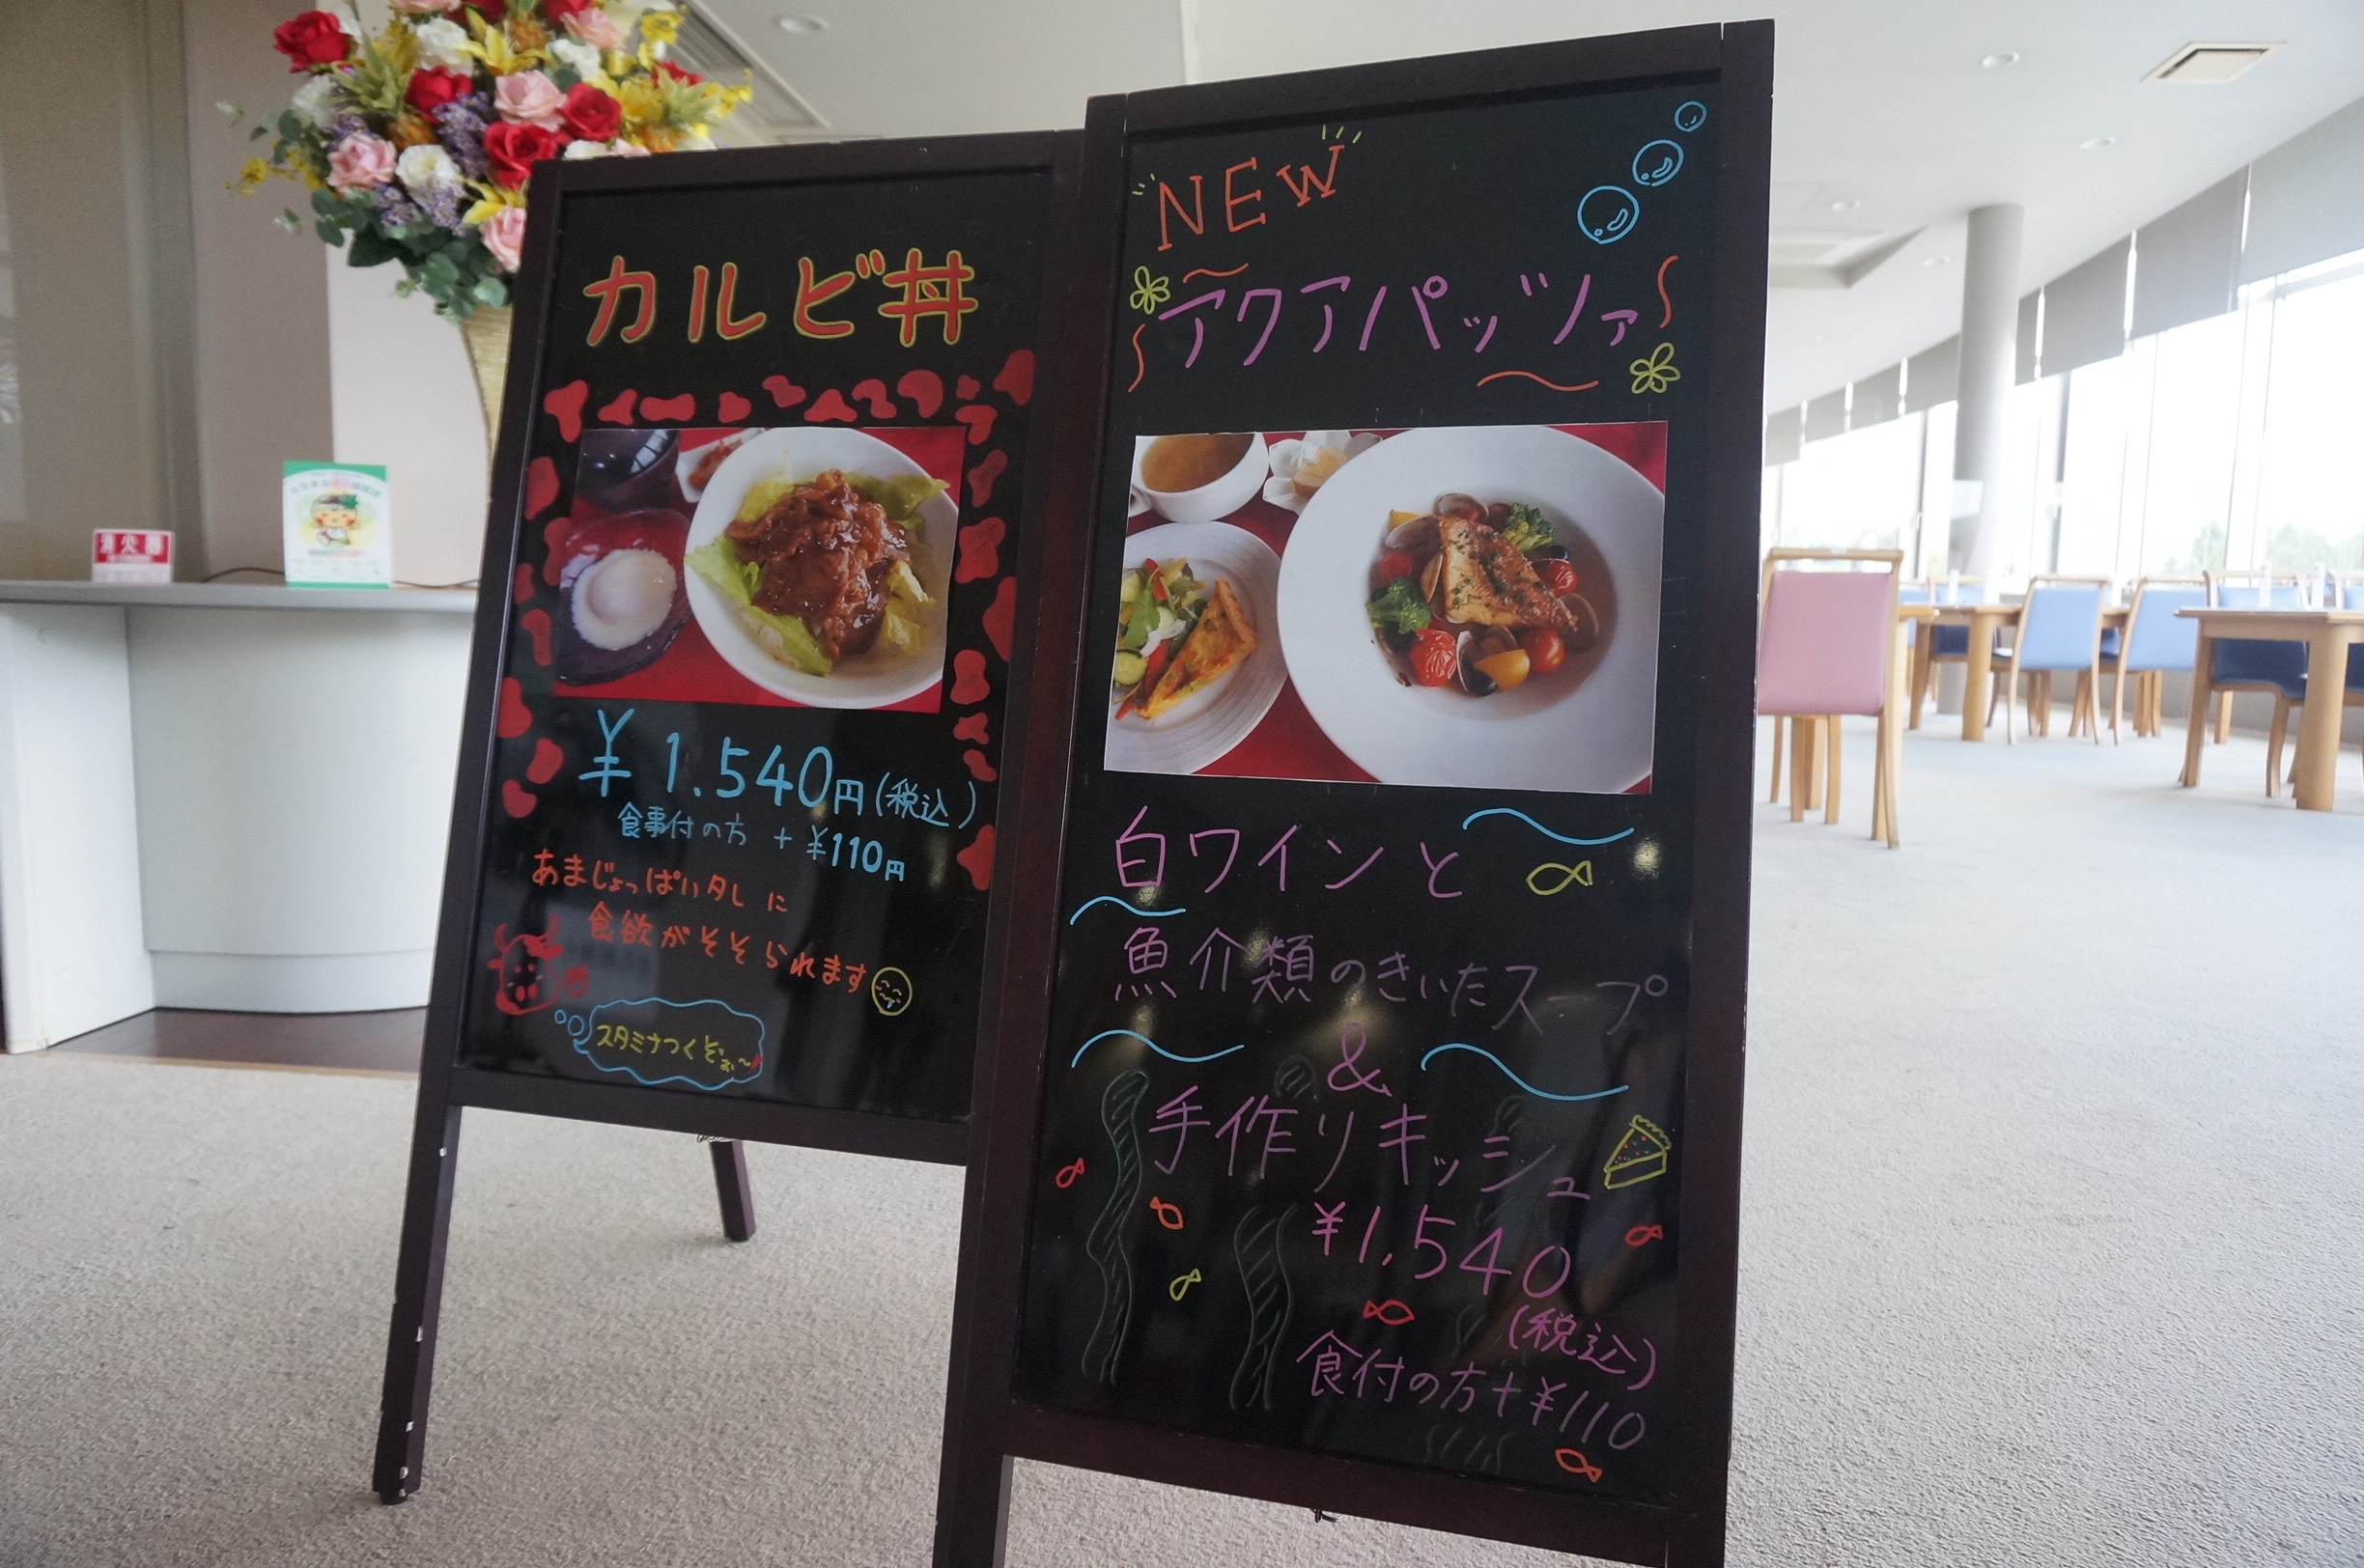 カルビ丼
¥1.540円(税込)
食事付の方 + ¥110円
あまじょっぱいタレに
食欲がそそられます
スタミナつくぞぉ~
NEW
アクアパッツァ
白ワインと
魚介類のきいたスープ
&
手作りキッシュ
¥1,540
(税込)
食付の方+¥110
消火器